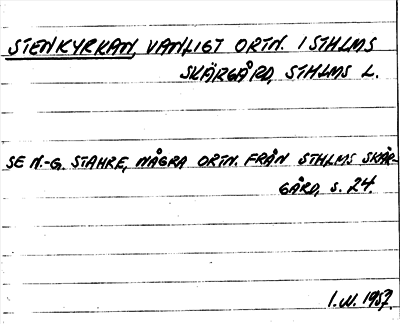 STENKYRKAN, VANLIGT ORTN. I STHLMS
SKÄRGÅRD, STHLMS L.
SE N.-G. STAHRE, NÅGRA ORTN. FRÅN STHLMS SKÄR-
GÅRD, S. 24.
I. W. 1957.